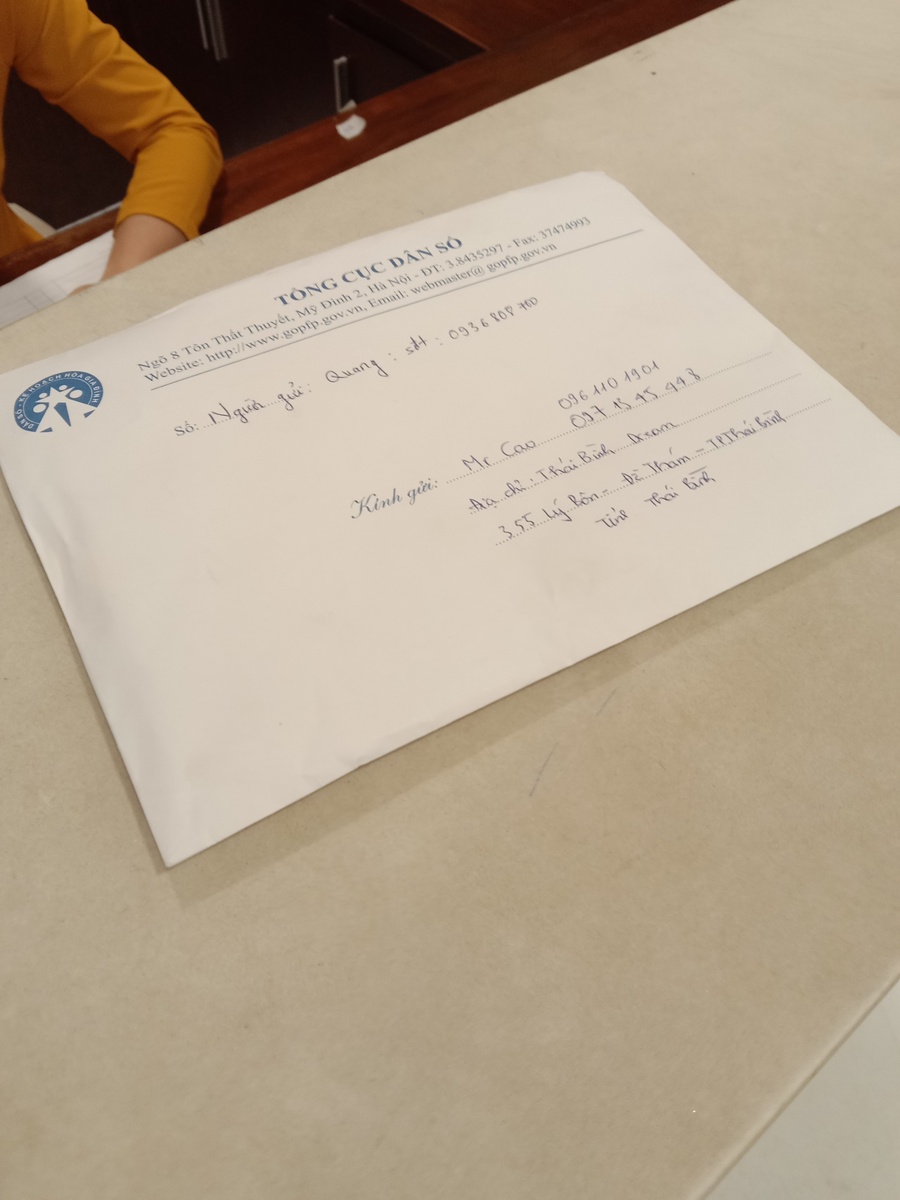 TỔNG CỤC DÂN SỐ
Ngõ 8 Tôn Thất Thuyết, Mỹ Đình 2, Hà Nội - ĐT: 3.8435297 - Fax: 37474993
Website: http://www.gopfp.gov.vn, Email: webmaster@gopfp.gov.vn
DÂN SỐ - KẾ HOẠCH HÓA GIA ĐÌNH
Số: Người gửi: Quang: sđt: 0936808760
096 110 1901
Kính gửi: Mr Cao 097 15 45 448
Địa chỉ: Thái Bình Dream
355 Lý Bôn - Đề Thám - TP Thái Bình
Tỉnh Thái Bình